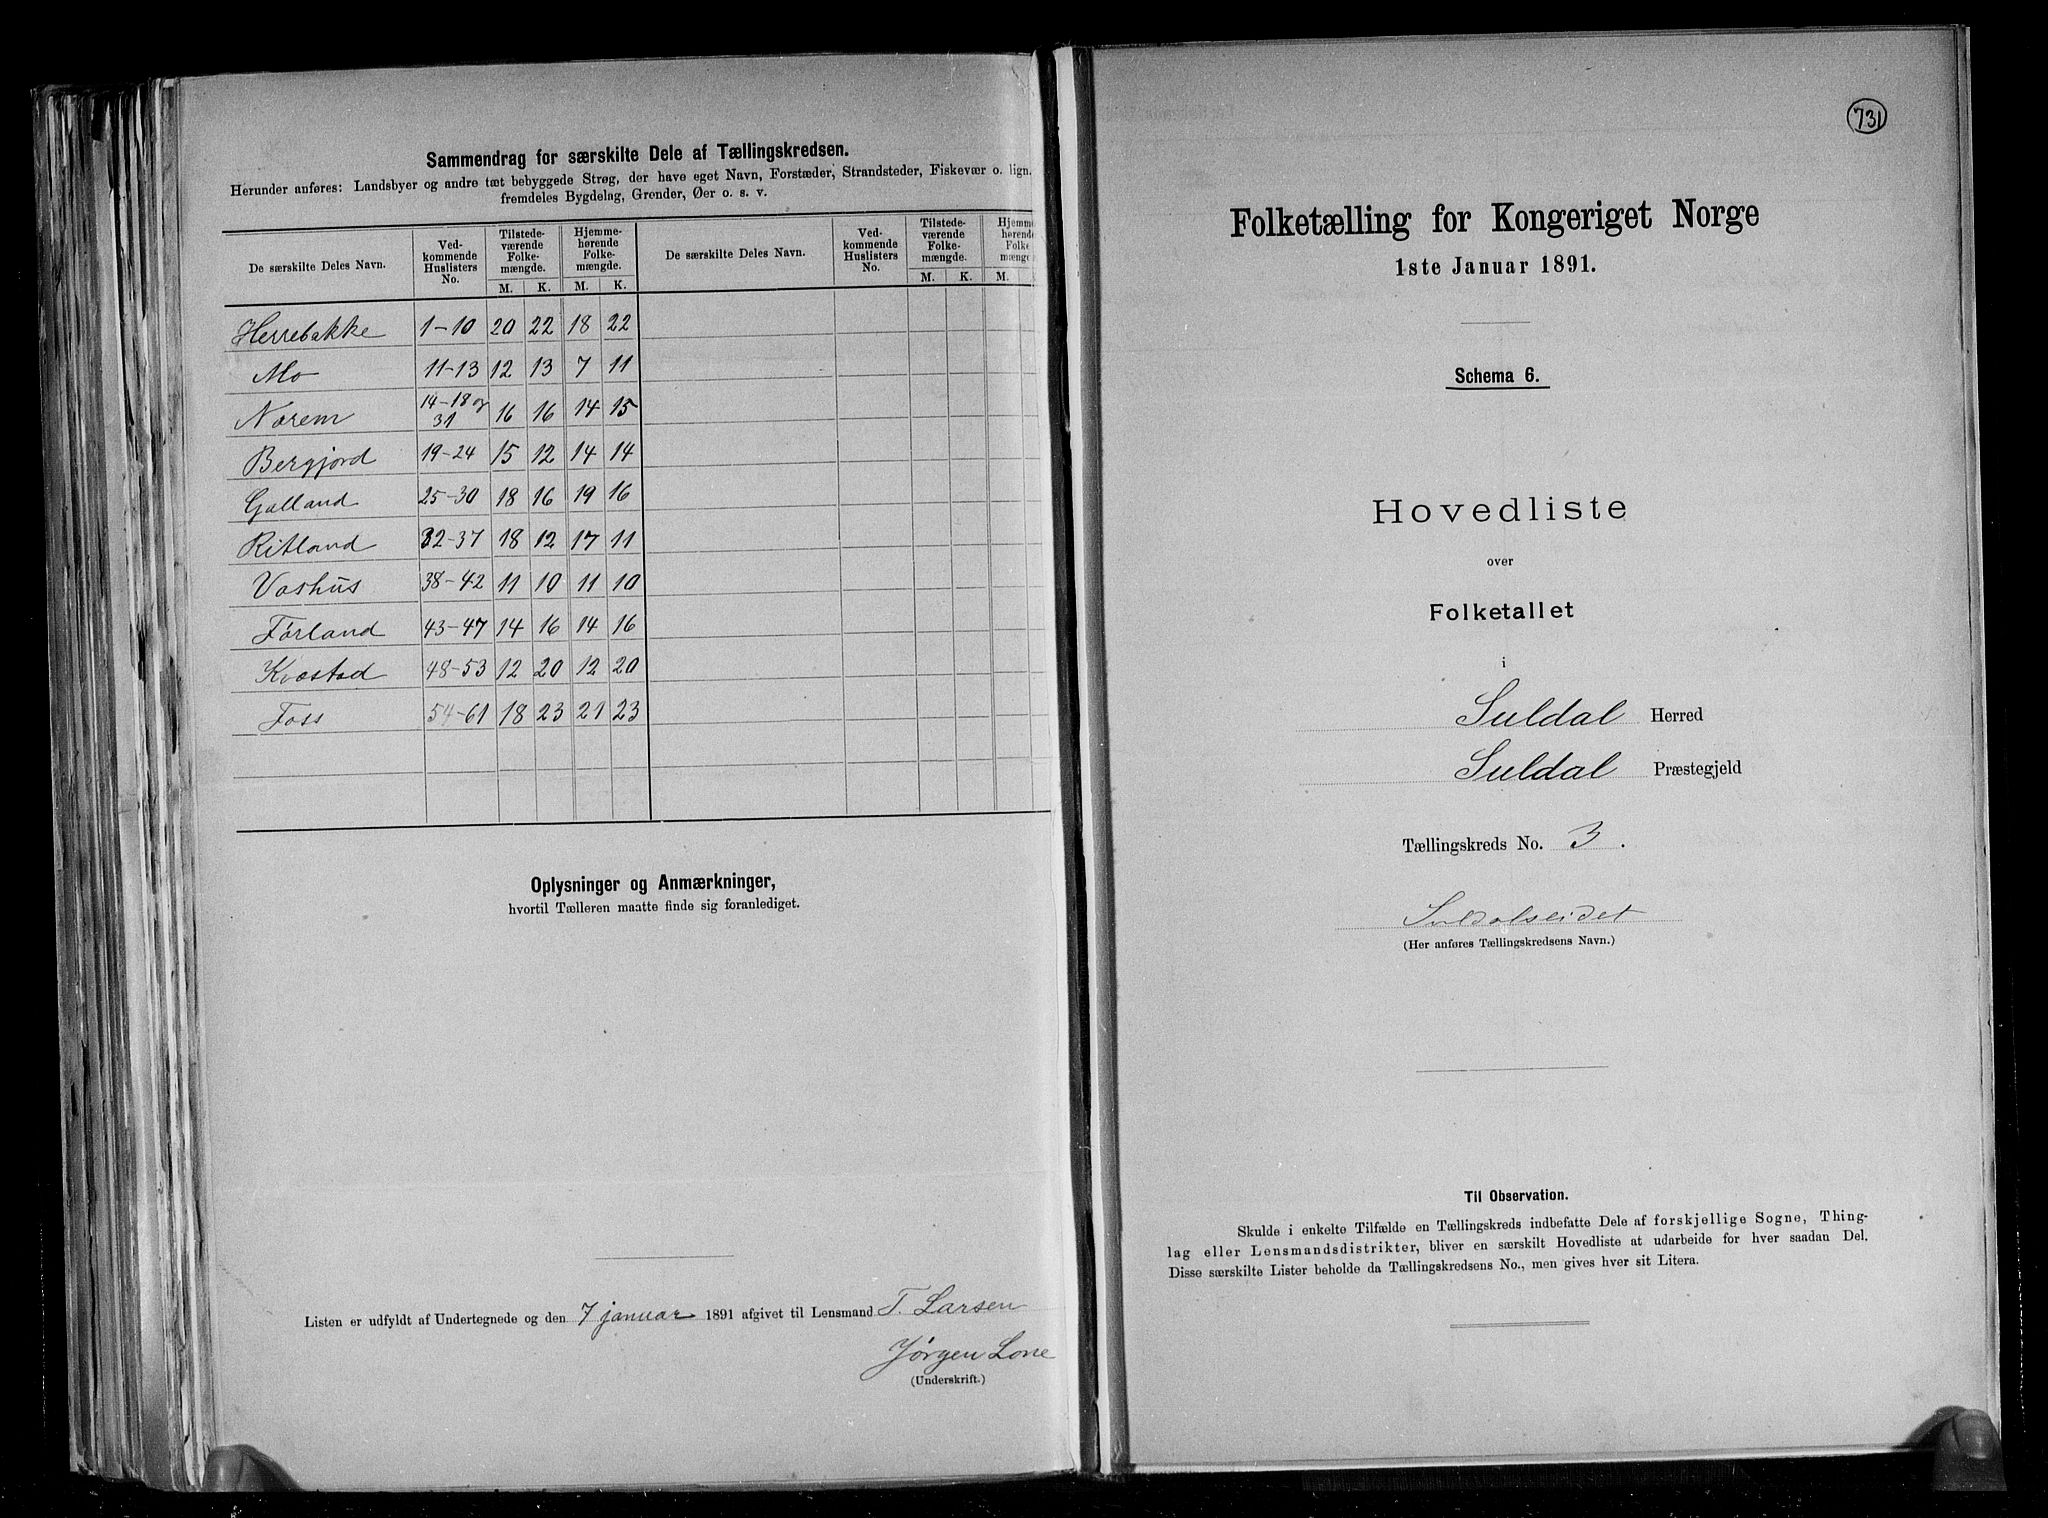 Sammendrag for særskilte Dele af Tællingskredsen.
Herunder anføres: Landsbyer og andre tæt bebyggede Strøg, der have eget Navn, Forstæder, Strandsteder, Fiskevær o. lign.
fremdeles Bygdelag, Grender, Øer o. s. v.
De særskilte Deles Navn. Ved-kommende Huslisters No. Tilstede-værende Folke-mængde. Hjemme-hørende Folke-mængde. De særskilte Deles Navn. Ved-kommende Huslisters No. Tilstede-værende Folke-mængde. Hjemme-hørende Folke
M. K. M. K. M. K. M.
Herrebakke 1-10 20 22 18 22
Mo 11-13 12 13 7 11
Narem 14-18 og 31 16 16 14 15
Bergjord 19-24 15 12 14 14
Gulland 25-30 18 16 19 16
Ritland 32-37 18 12 17 11
Vashus 38-42 11 10 11 10
Førland 43-47 14 16 14 16
Kvæstad 48-53 12 20 12 20
Foss 54-61 18 23 21 23
Oplysninger og Anmærkninger,
hvortil Tælleren maatte finde sig foranlediget.
Listen er udfyldt af Undertegnede og den 7 januar 1891 afgivet til Lensmand T. Larsen
Jørgen Lone
(Underskrift.)
731
Folketælling for Kongeriget Norge
1ste Januar 1891.
Schema 6.
Hovedliste
over
Folketallet
i
Suldal Herred
Suldal Præstegjeld
Tællingskreds No. 3.
Suldalseidet
(Her anføres Tællingskredsens Navn.)
Til Observation.
Skulde i enkelte Tilfælde en Tællingskreds indbefatte Dele af forskjellige Sogne, Thing-
lag eller Lensmandsdistrikter, bliver en særskilt Hovedliste at udarbeide for hver saadan Del.
Disse særskilte Lister beholde da Tællingskredsens No., men gives hver sit Litera.